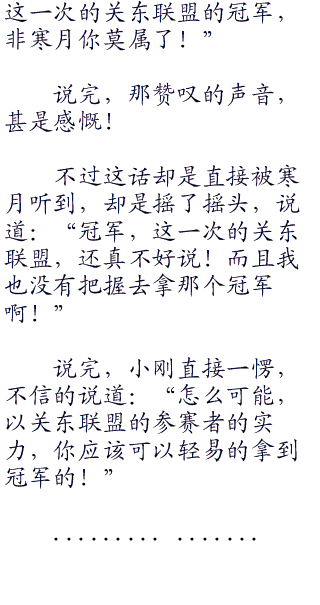 这一次的关东联盟的冠军，
非寒月你莫属了！”
说完，那赞叹的声音，
甚是感慨！
不过这话却是直接被寒
月听到，却是摇了摇头，说
道：“冠军，这一次的关东
联盟，还真不好说！而且我
也没有把握去拿那个冠军
啊！”
说完，小刚直接一愣，
不信的说道：“怎么可能，
以关东联盟的参赛者的实
力，你应该可以轻易的拿到
冠军的！”
......... .......